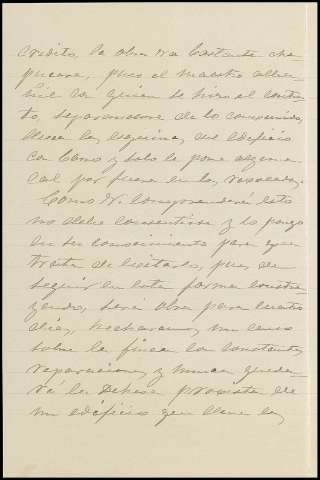 crédito, la obra va bastante cha-
pucera, pues el maestro alba-
ñil a quien se hizo el contra-
to, separandose de lo convenido,
lleva las esquinas del edificio
con barro y solo le pone alguna
cal por fuera en los rasocados.
Como V. comprenderá esto
no debe consentirse y lo pongo
en su conocimiento para que
trate de evitarlo, pues de
seguir en esta forma constru-
yendo, será obra para cuatro
dias, pecharan un censo
sobre la finca las constantes
reparaciones y nunca queda-
rá la Dehesa provista de
un edificio que llene las